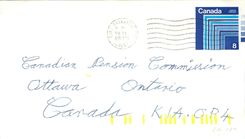 Canada
8
Canadian Pension Commission
Ottawa Ontario
Canada K1A 0P4